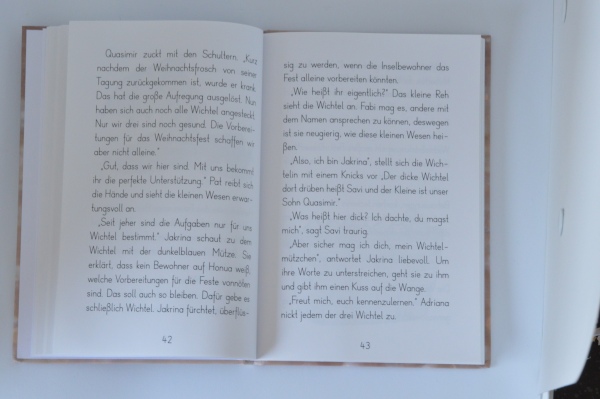 Quasimir zuckt mit den Schultern. „Kurz
nachdem der Weihnachtsfrosch von seiner
Tagung zurückgekommen ist, wurde er krank.
Das hat die große Aufregung ausgelöst. Nun
haben sich auch noch alle Wichtel angesteckt.
Nur wir drei sind noch gesund. Die Vorberei-
tungen für das Weihnachtsfest schaffen wir
aber nicht alleine.“
„Gut, dass wir hier sind. Mit uns bekommt
ihr die perfekte Unterstützung.“ Pat reibt sich
die Hände und sieht die kleinen Wesen erwar-
tungsvoll an.
„Seit jeher sind die Aufgaben nur für uns
Wichtel bestimmt.“ Jakrina schaut zu dem
Wichtel mit der dunkelblauen Mütze. Sie
erklärt, dass kein Bewohner auf Honua weiß,
welche Vorbereitungen für die Feste vonnöten
sind. Das soll auch so bleiben. Dafür gebe es
schließlich Wichtel. Jakrina fürchtet, überflüs-
42
sig zu werden, wenn die Inselbewohner das
Fest alleine vorbereiten könnten.
„Wie heißt ihr eigentlich?“ Das kleine Reh
sieht die Wichtel an. Fabi mag es, andere mit
dem Namen ansprechen zu können, deswegen
ist sie neugierig, wie diese kleinen Wesen hei-
ßen.
„Also, ich bin Jakrina“, stellt sich die Wich-
telin mit einem Knicks vor. „Der dicke Wichtel
dort drüben heißt Savi und der Kleine ist unser
Sohn Quasimir.“
„Was heißt hier dick? Ich dachte, du magst
mich“, sagt Savi traurig.
„Aber sicher mag ich dich, mein Wichtel-
mützchen“, antwortet Jakrina liebevoll. Um
ihre Worte zu unterstreichen, geht sie zu ihm
und gibt ihm einen Kuss auf die Wange.
„Freut mich, euch kennenzulernen.“ Adriana
nickt jedem der drei Wichtel zu.
43